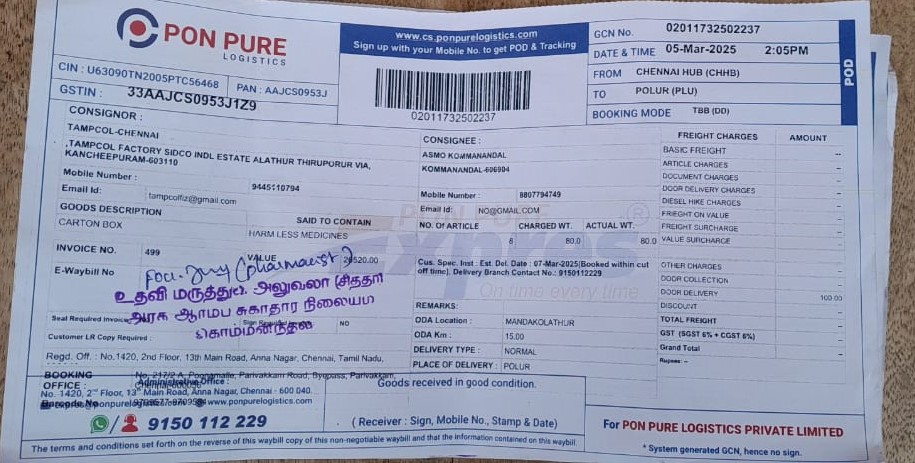 PON PURE
LOGISTICS
www.cs.ponpurelogistics.com
Sign up with your Mobile No. to get POD & Tracking
02011732502237
GCN No. 02011732502237
DATE & TIME 05-Mar-2025 2:05PM
FROM CHENNAI HUB (CHHB)
TO POLUR (PLU)
BOOKING MODE TBB (DD)
POD
CIN : U63090TN2005PTC56468 PAN : AAJCS0953J
GSTIN : 33AAJCS0953J1Z9
CONSIGNOR :
TAMPCOL-CHENNAI
,TAMPCOL FACTORY SIDCO INDL ESTATE ALATHUR THIRUPORUR VIA,
KANCHEEPURAM-603110
Mobile Number : 9445110794
Email Id: tampcolfiz@gmail.com
GOODS DESCRIPTION SAID TO CONTAIN
CARTON BOX HARM LESS MEDICINES
INVOICE NO. 499 VALUE 20520.00
E-Waybill No
(pharmacist)
உதவி மருத்துவ அலுவலர் (சித்தா)
அரசு ஆரம்ப சுகாதார நிலையம்
கொம்மனந்தல்
Seal Required Invoice NO
Customer LR Copy Required :
Regd. Off. : No.1420, 2nd Floor, 13th Main Road, Anna Nagar, Chennai, Tamil Nadu,
BOOKING OFFICE : No. 217/2 A, Poonamalle, Parivakkam Road, Byepass, Parivakkam,
Administrative Office :
No. 1420, 2nd Floor, 13th Main Road, Anna Nagar, Chennai - 600 040.
www.ponpurelogistics.com
9150 112 229
CONSIGNEE :
ASMO KOMMANANDAL
KOMMANANDAL-606904
Mobile Number : 8807794749
Email Id: NO@GMAIL.COM
NO. OF ARTICLE CHARGED WT. ACTUAL WT.
8 80.0 80.0
PON PURE
Express
On time every time
Cus. Spec. Inst : Est. Del. Date : 07-Mar-2025(Booked within cut
off time). Delivery Branch Contact No.: 9150112229
REMARKS:
ODA Location : MANDAKOLATHUR
ODA Km : 15.00
DELIVERY TYPE : NORMAL
PLACE OF DELIVERY : POLUR
Goods received in good condition.
( Receiver : Sign, Mobile No., Stamp & Date)
FREIGHT CHARGES AMOUNT
BASIC FREIGHT --
ARTICLE CHARGES --
DOCUMENT CHARGES --
DOOR DELIVERY CHARGES --
DIESEL HIKE CHARGES --
FRIEGHT ON VALUE --
FREIGHT SURCHARGE --
VALUE SURCHARGE --
OTHER CHARGES --
DOOR COLLECTION --
DOOR DELIVERY 100.00
DISCOUNT --
TOTAL FREIGHT --
GST (SGST 6% + CGST 6%) --
Grand Total --
Rupees: --
For PON PURE LOGISTICS PRIVATE LIMITED
* System generated GCN, hence no sign.
The terms and conditions set forth on the reverse of this waybill copy of this non-negotiable waybill and that the information contained on this waybill.